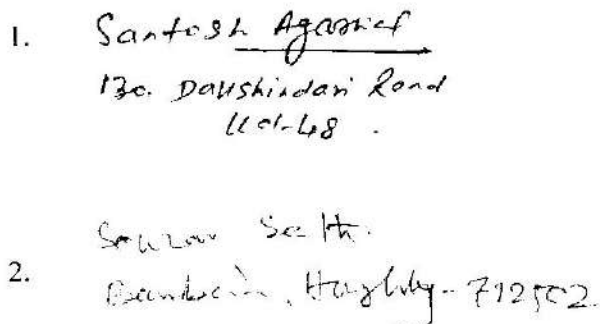 1. Santosh Agarwal
130. Dakshindari Road
Kol-48.
Sourav Seth.
2. Hooghly-712502